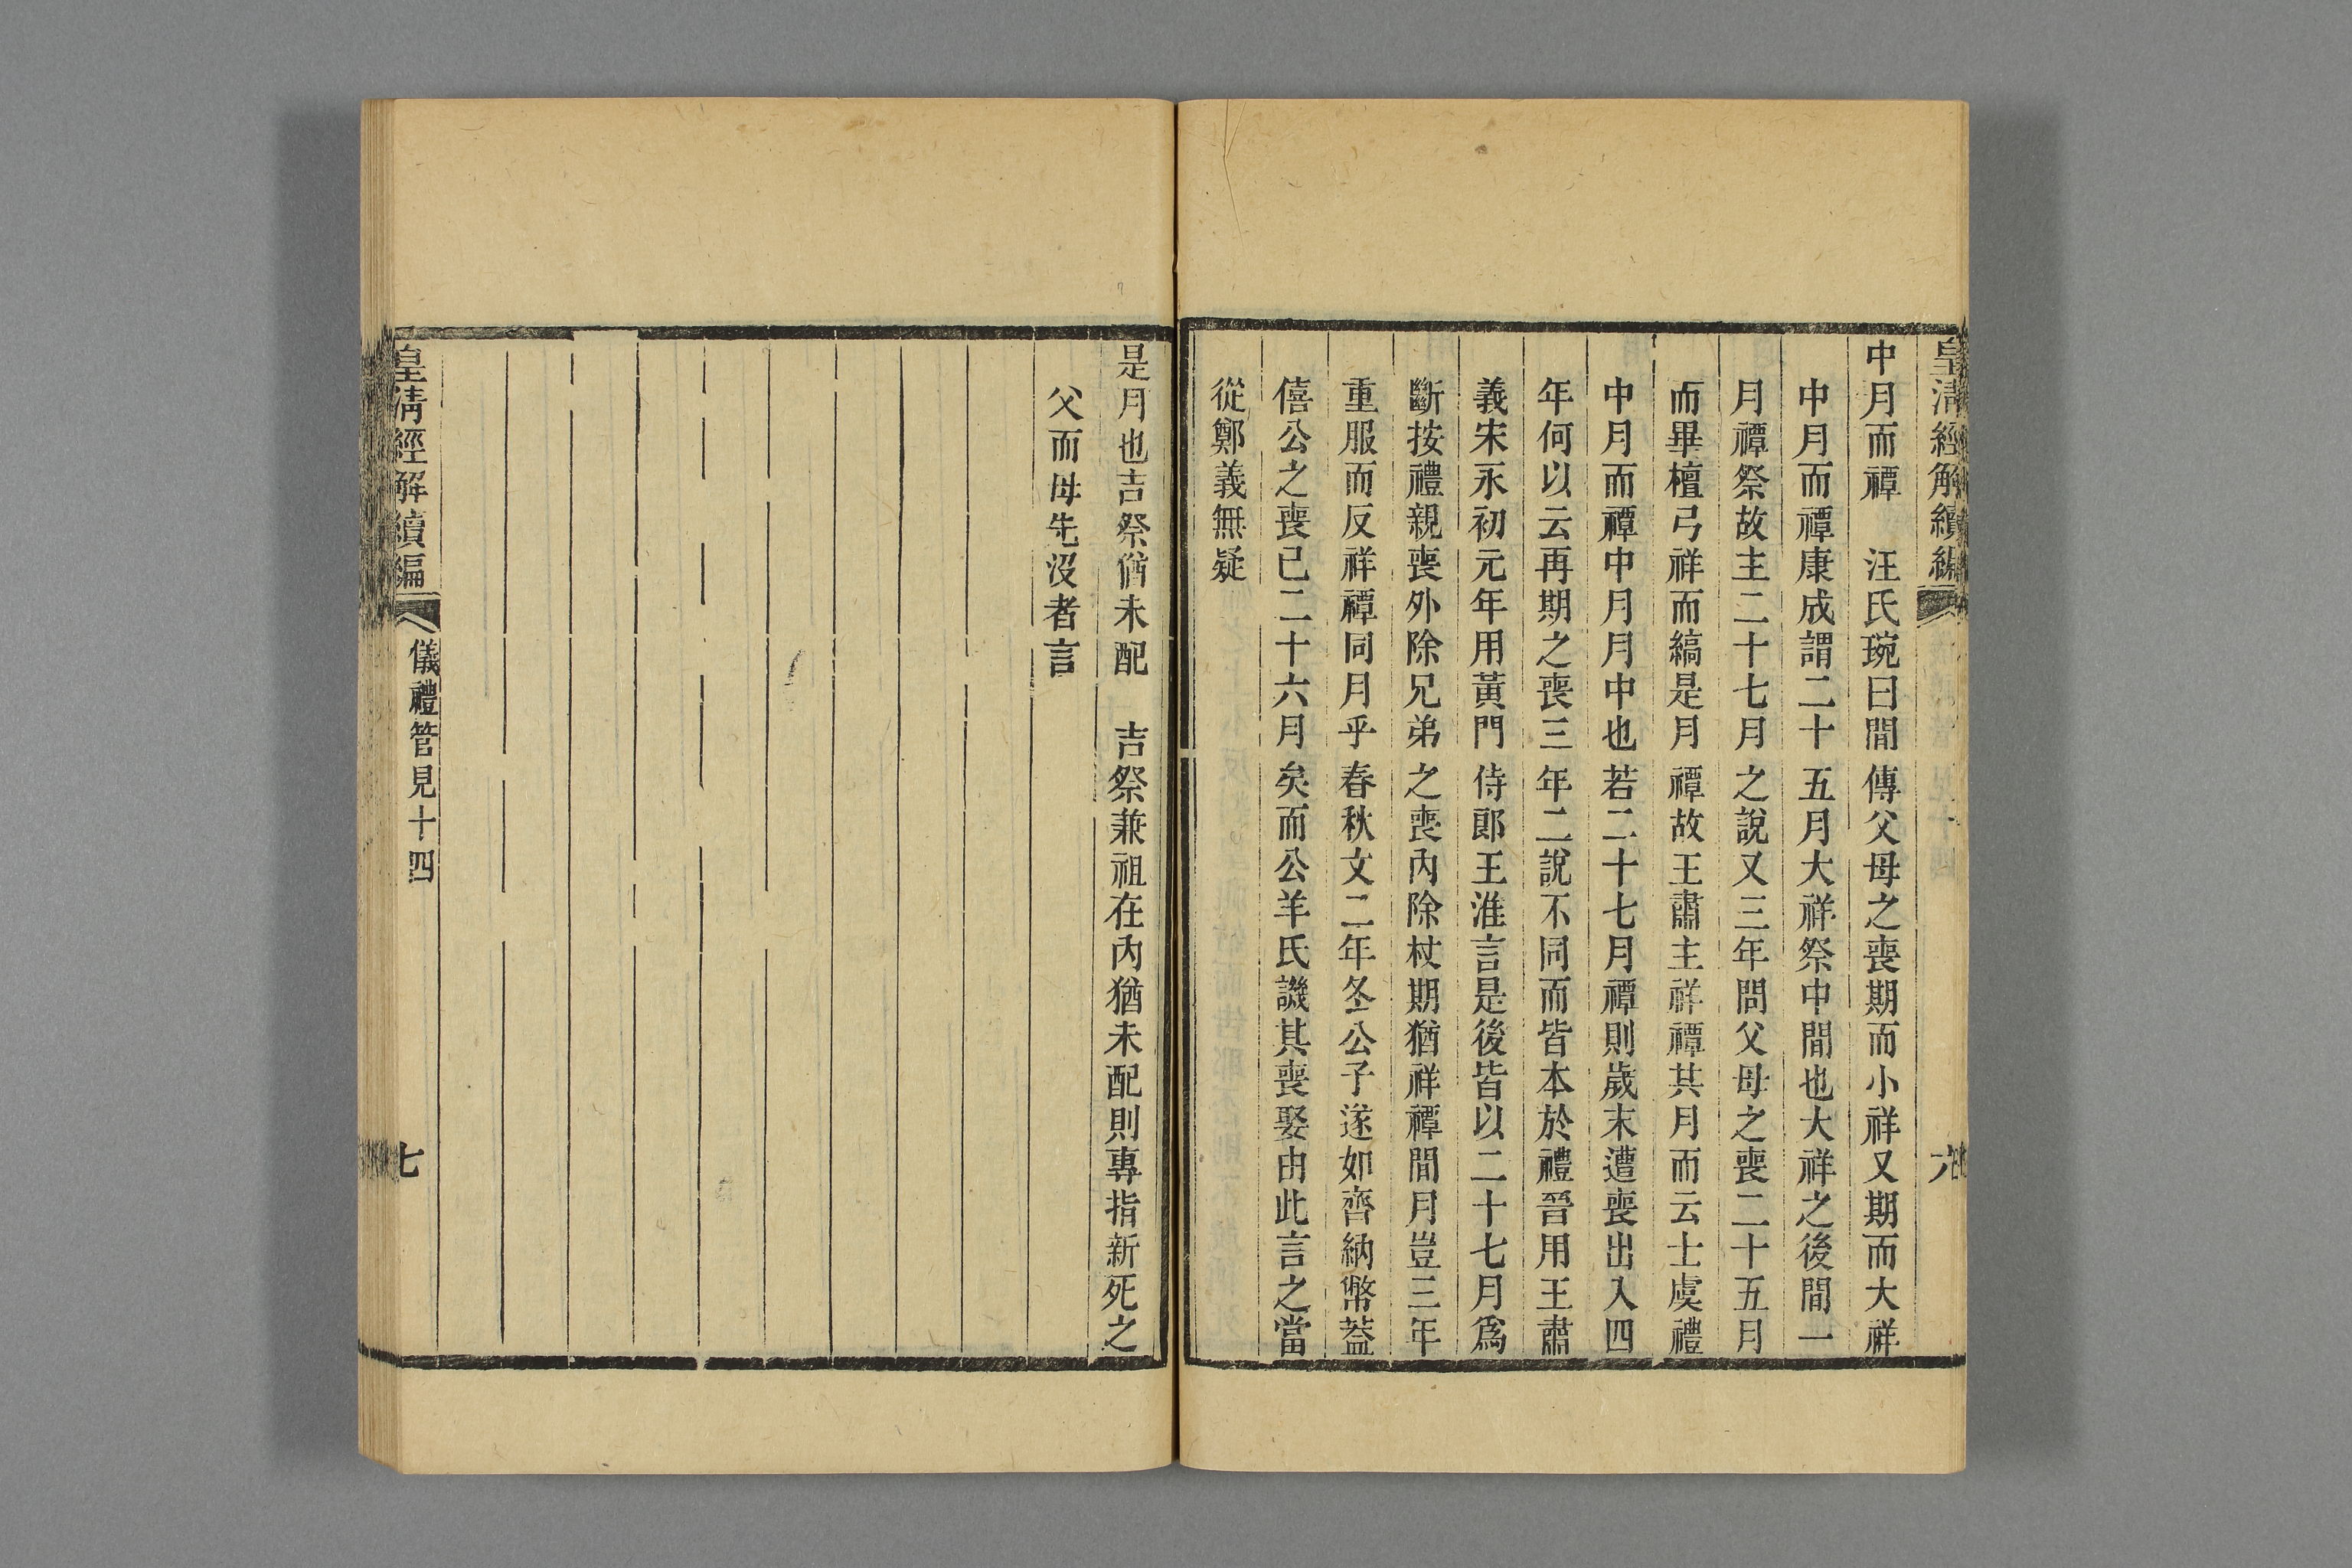 皇淸經解續編
六
中月而禫　汪氏琬曰閒傳父母之喪期而小祥又期而大祥
中月而禫康成謂二十五月大祥祭中閒也大祥之後閒一
月禫祭故主二十七月之說又三年問父母之喪二十五月
而畢檀弓祥而縞是月禫故王肅主祥禫其月而云士虞禮
中月而禫中月月中也若二十七月禫則歲末遭喪出入四
年何以云再期之喪三年二說不同而皆本於禮晉用王肅
義宋永初元年用黃門侍郎王淮言是後皆以二十七月爲
斷按禮親喪外除兄弟之喪內除杖期猶祥禫閒月豈三年
重服而反祥禫同月乎春秋文二年冬公子遂如齊納幣葢
僖公之喪已二十六月矣而公羊氏譏其喪娶由此言之當
從鄭義無疑
是月也吉祭猶未配　吉祭兼祖在內猶未配則專指新死之
父而母先沒者言
皇淸經解續編
儀禮管見十四
七